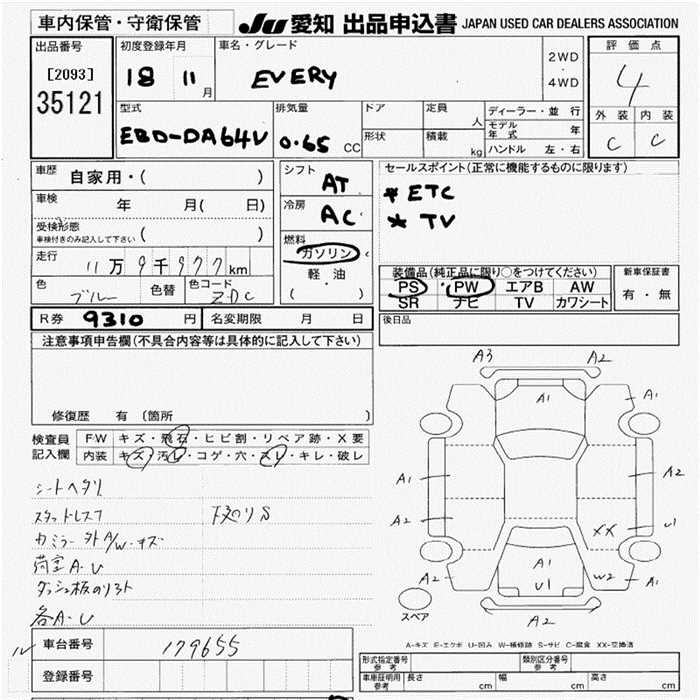 車内保管・守衛保管
JU 愛知 出品申込書 JAPAN USED CAR DEALERS ASSOCIATION
出品番号
[2093]
35121
初度登録年月
18 11月
車名・グレード
EVERY
2WD
・
4WD
評価点
4
外装 内装
C C
型式
EBD-DA64V
排気量
0.65 CC
ドア
形状
定員 人
積載 kg
ディーラー・並行
モデル年式 年
ハンドル 左・右
車歴
自家用・( )
車検 年 月( 日)
受検形態
車検付きのみ記入して下さい ( )
走行
11万9千977km
色 ブルー 色替 色コード ZDC
シフト AT
冷房 AC
燃料
ガソリン
軽・油
( )
セールスポイント(正常に機能するものに限ります)
* ETC
* TV
装備品(純正品に限り○をつけてください)
PS PW エアB AW
SR ナビ TV カワシート
新車保証書
有・無
R券 9310 円 名変期限 月 日
後日品
注意事項申告欄(不具合内容等は具体的に記入して下さい)
修復歴 有(箇所 )
検査員
記入欄
FW キズ・飛石・ヒビ割・リペア跡・X要
内装 キズ・汚レ・コゲ・穴・スレ・キレ・破レ
シートヘタリ
スタットレス7 下廻りS
カミラー外A/W・キズ
荷室A・U
ダッシュ板のりあと
各A・U
A3 A2
A1
A1
A1 A2
A2 U1
XX
A1
U1
W2
A2 A1
A2
スペア
A-キズ E-エクボ U-凹み W-補修跡 S-サビ C-腐食 XX-交換済
車台番号 179655
登録番号
形式指定番号
参考
類別区分番号
参考
車庫証明用
参考
長さ cm 幅 cm 高さ cm